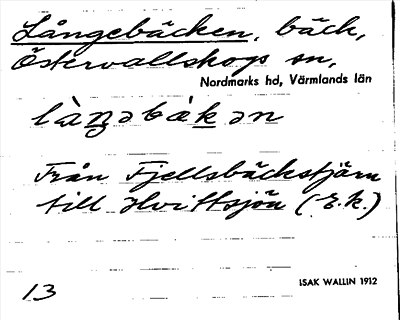 Långebäcken, bäck,
Östervallskogs sn,
Nordmarks hd, Värmlands län
làŋəbàkən
Från Fjellsbäckstjärn
till Hvittsjön (E.k.)
ISAK WALLIN 1912
13